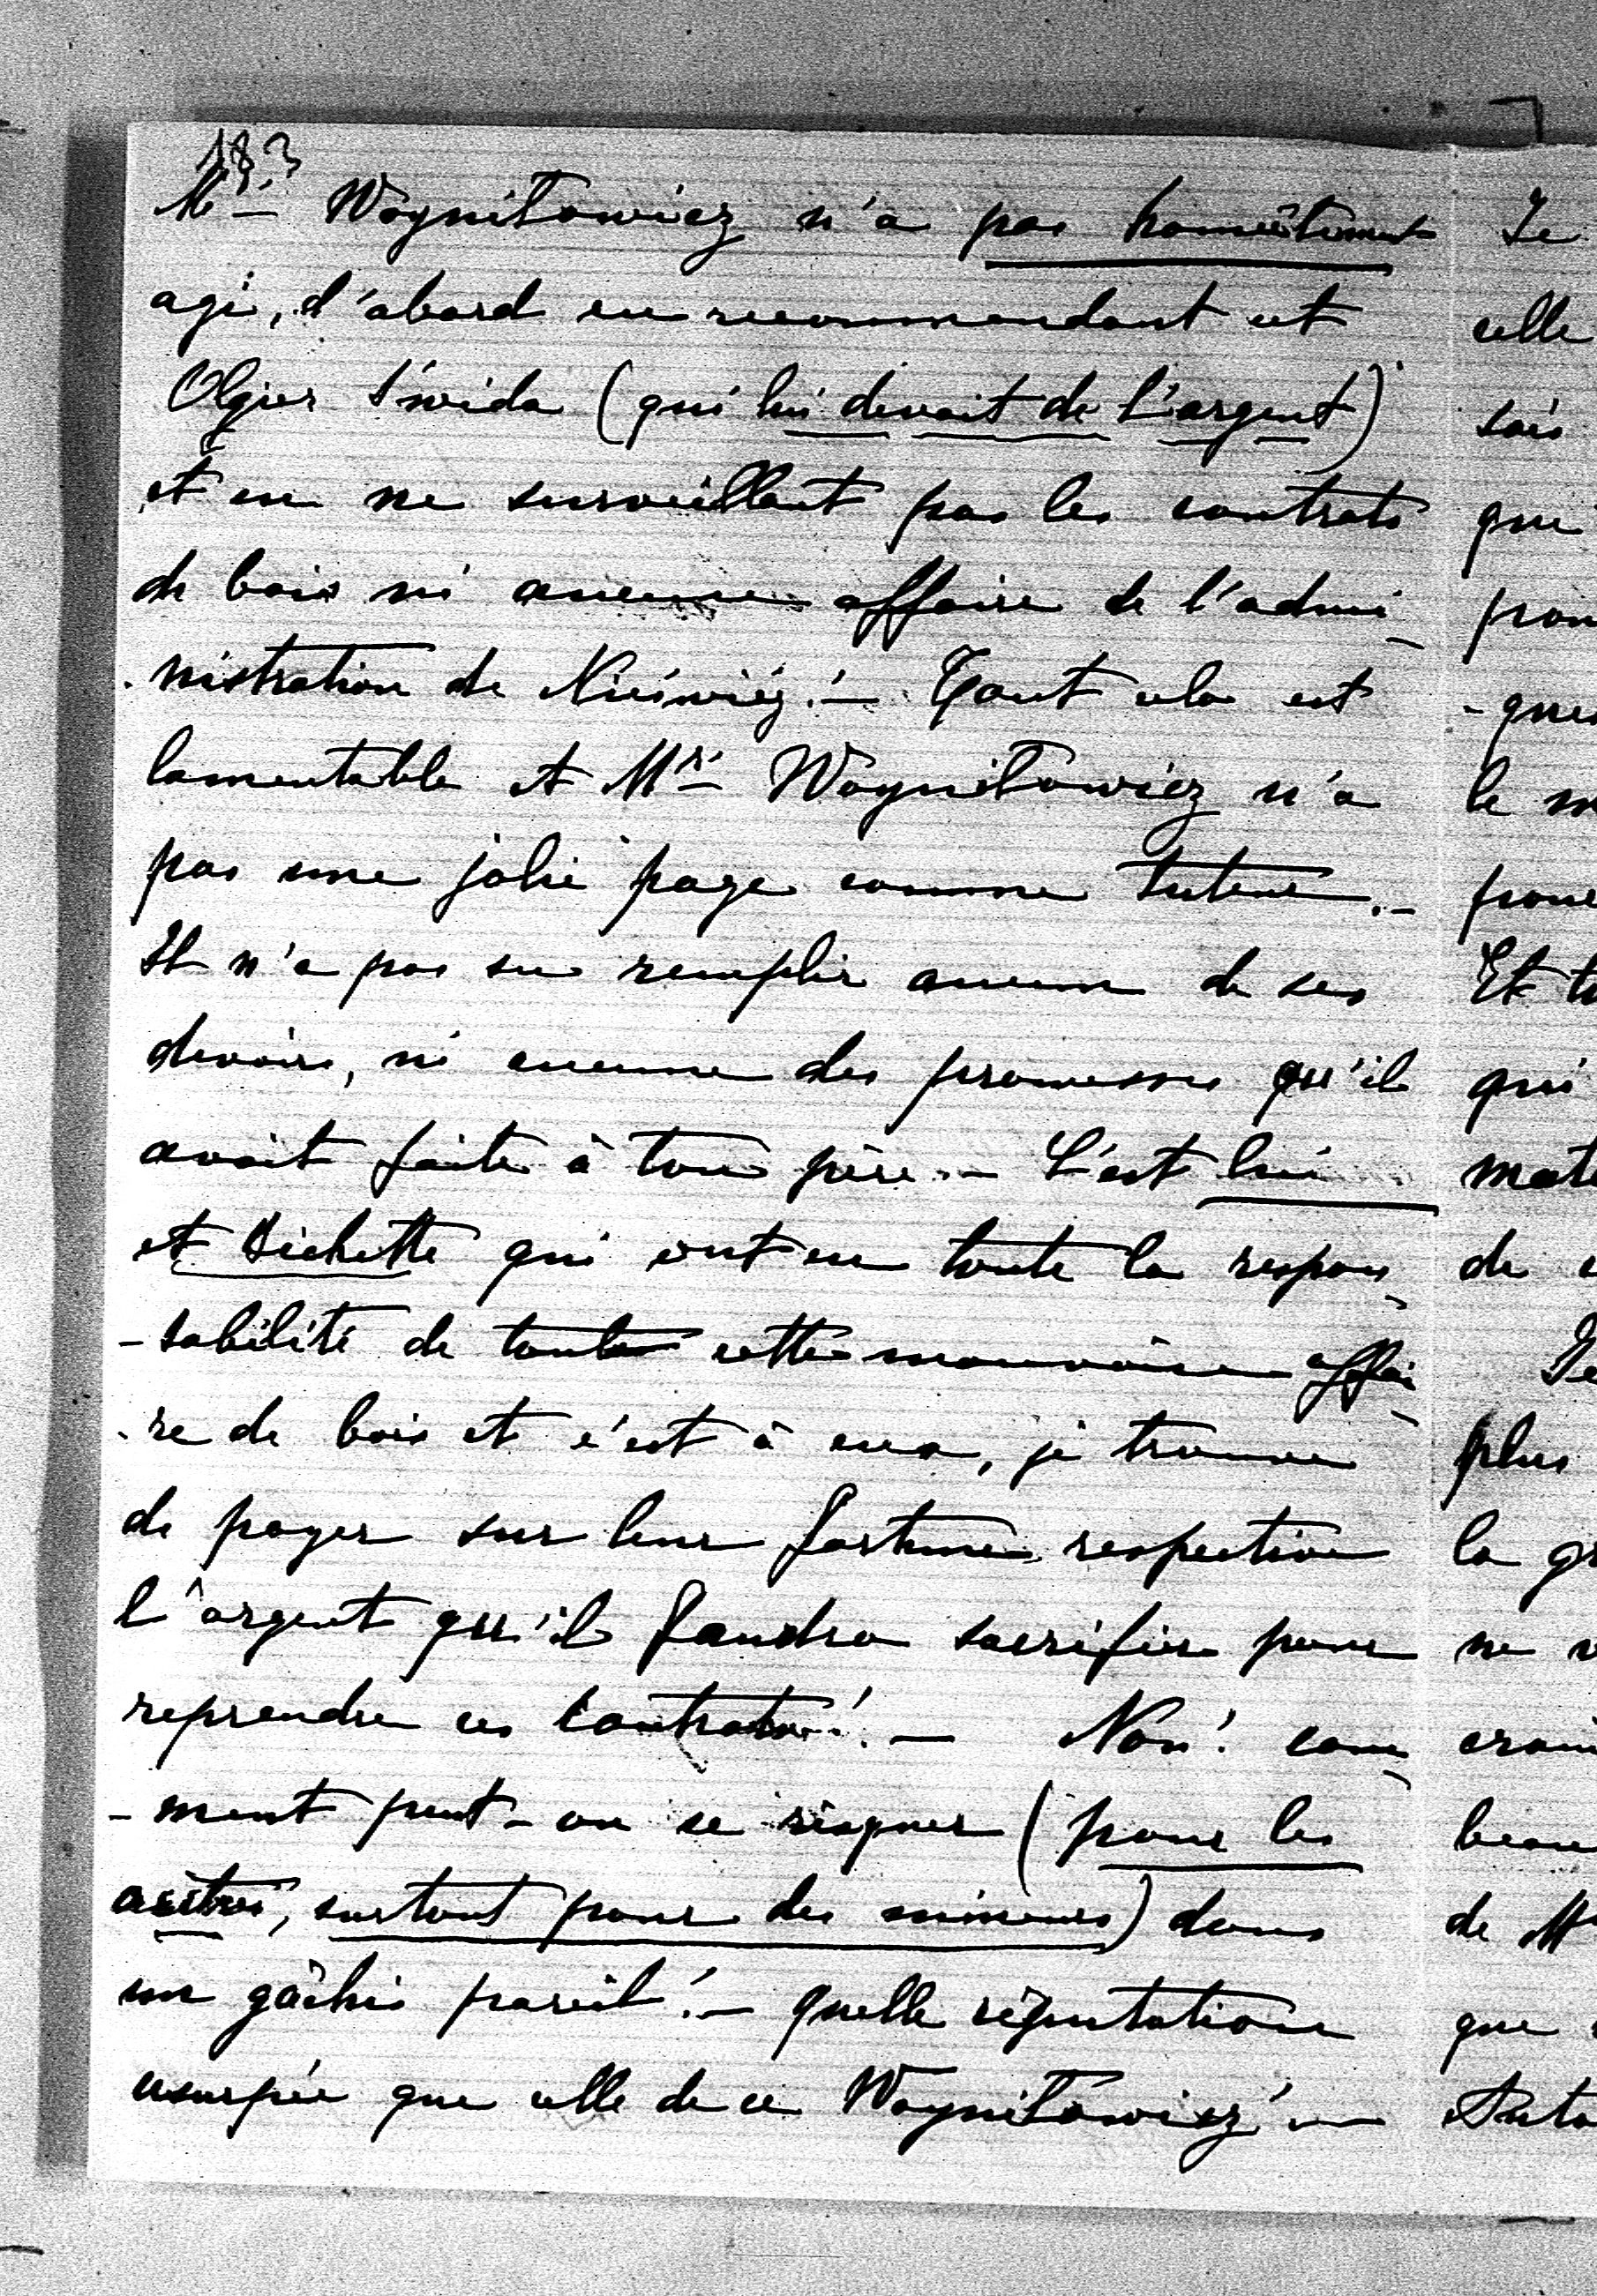 183
Mr Woyniłłowicz n'a pas honnêtement
agi, d'abord en recommandant cet
Olgier Świda (qui lui devait de l'argent)
et en ne surveillant pas les contrats
de bois ni aucune affaire de l'admi-
-nistration de Nieśwież! — Tout cela est
lamentable et Mr Woyniłłowicz n'a
pas une jolie page comme tuteur. —
Il n'a pas su remplir aucun de ses
devoirs, ni aucune des promesses qu'il
avait faite à ton père. — C'est lui
et Bichette qui ont eu toute la respon-
-sabilité de toute cette mauvaise affai-
-re de bois et c'est à eux, je trouve
de payer sur leur fortune respective
l'argent qu'il faudra sacrifier pour
reprendre ces contrats! — Non! com-
-ment peut-on se risquer (pour les
autres, surtout pour des mineurs) dans
un gâchis pareil! — quelle réputation
usurpée que celle de ce Woyniłłowicz! —
Je
celle
sais
que
pro
-que
le
pou
Et
qui
mat
de
Je
plus
la gr
ne
crai
beau
de Mr
que
Anto